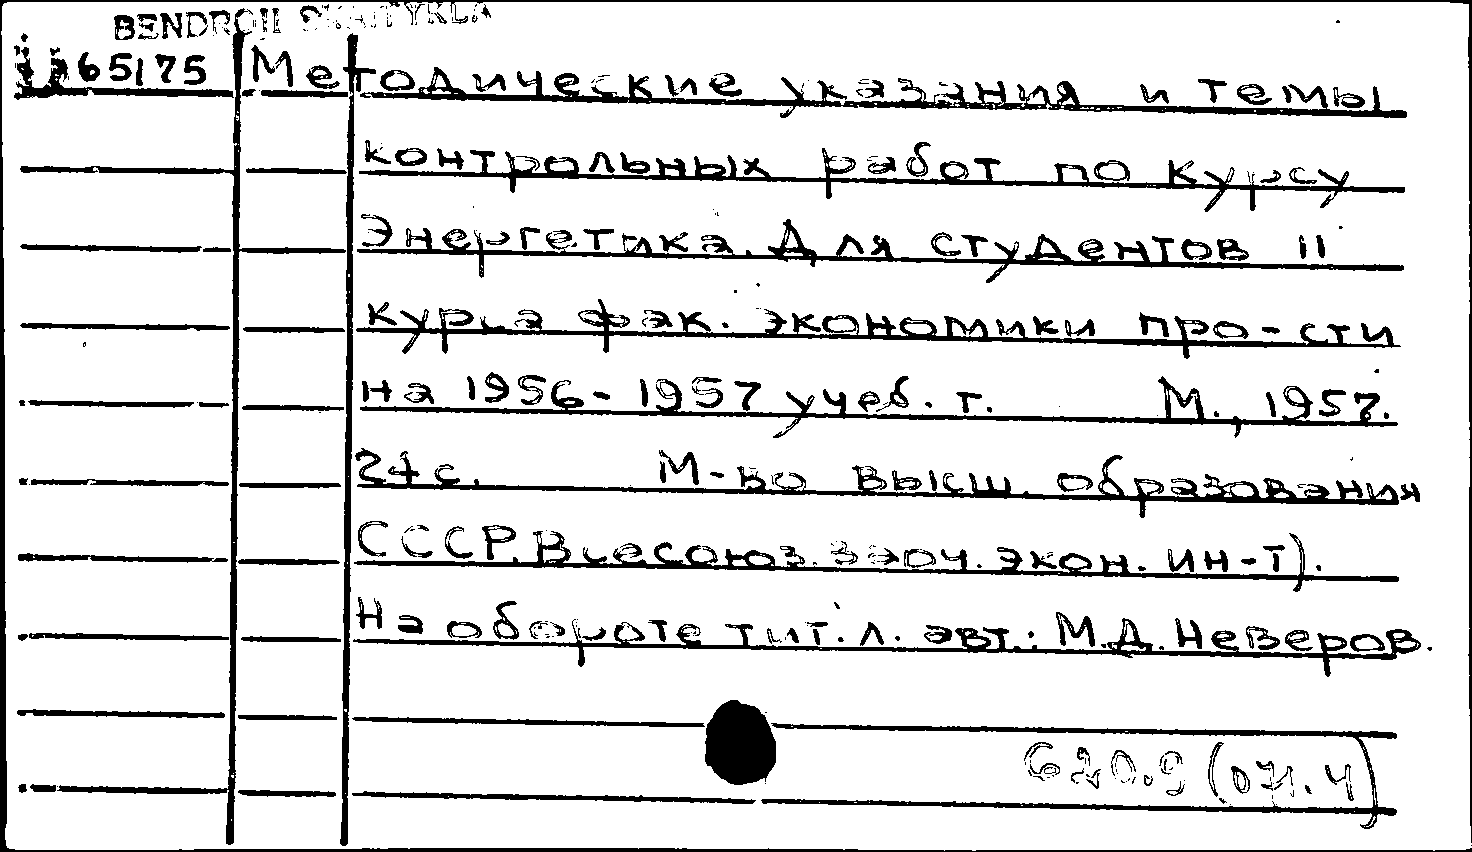 BENDROJI SKAITYKLA
65175 Методические указания и темы
контрольных работ по курсу
Энергетика. Для студентов II
курса фак. экономики про-сти
на 1956-1957 учеб. г. М., 1957.
24 с. М-во высш. образования
СССР. Всесоюз. заоч. экон. ин-т).
На обороте тит. л. авт.: М.Д. Неверов.
620.9 (071.4)